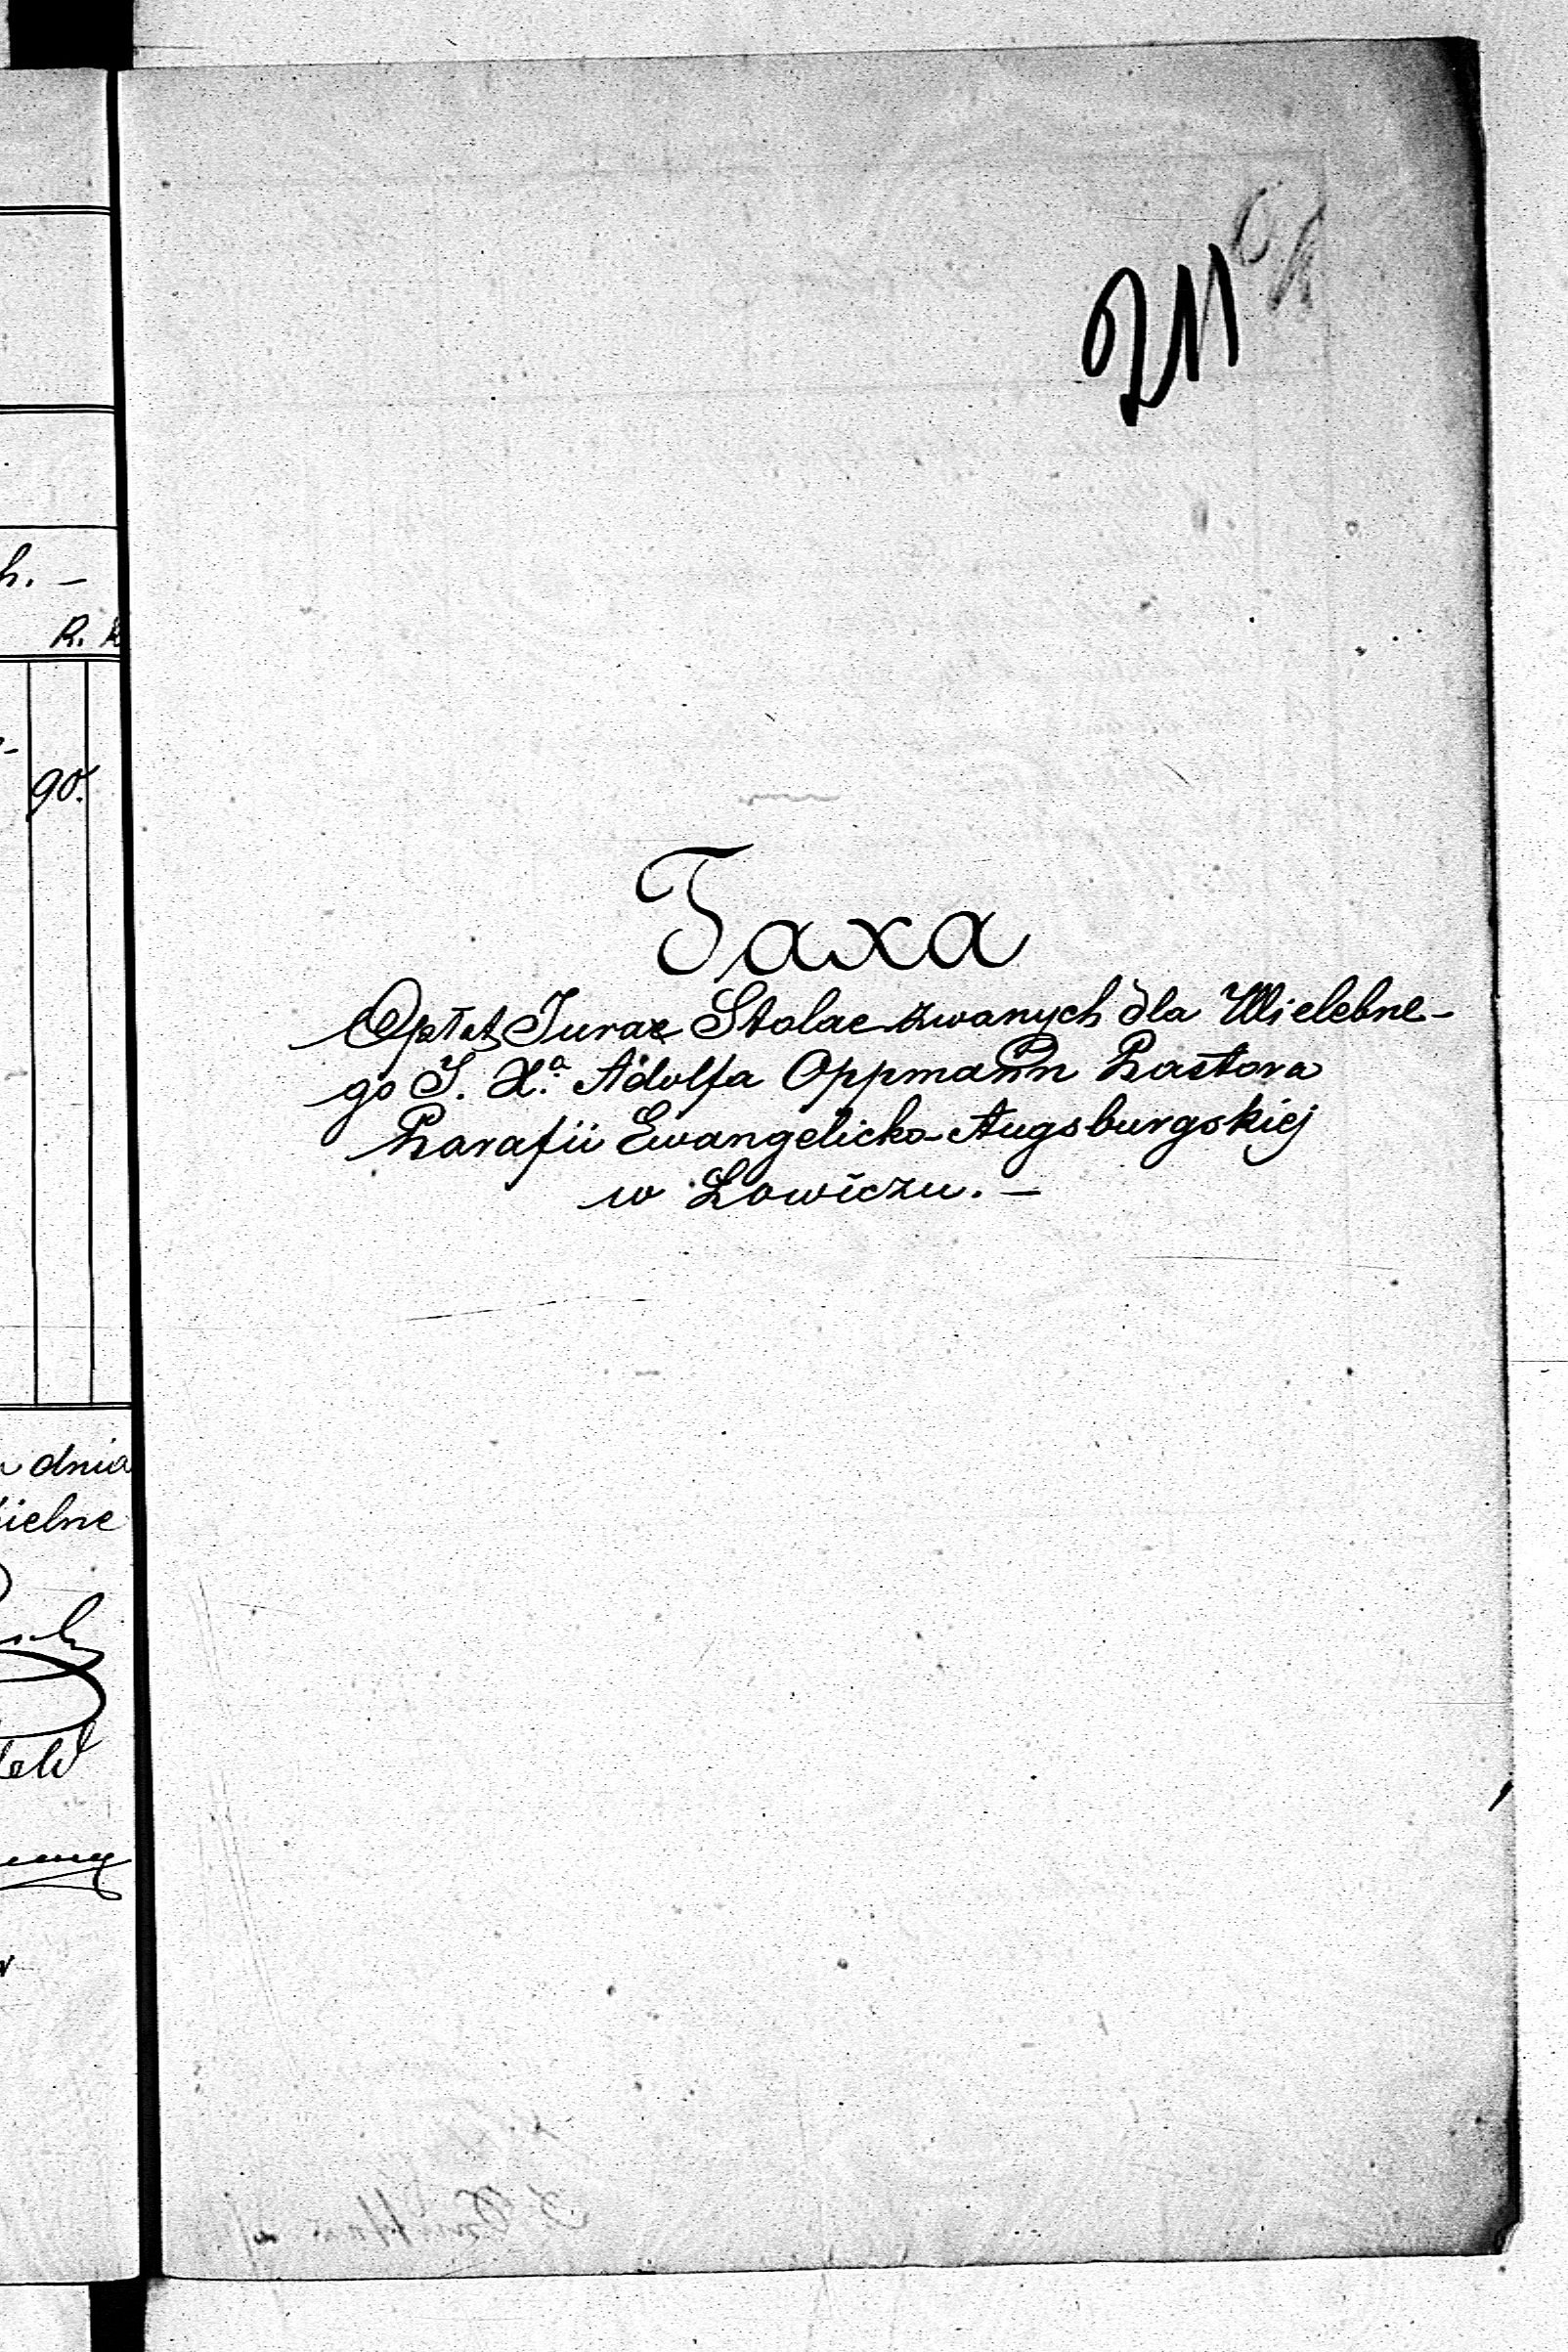 h. –
R. k
90.
dnia
ielne
211
Taxa
Opłat Jurae Stolae zwanych dla Wielebne-
go J. X.ª Adolfa Oppmann Pastora
Parafii Ewangelicko-Augsburgskiej
w Łowiczu. –